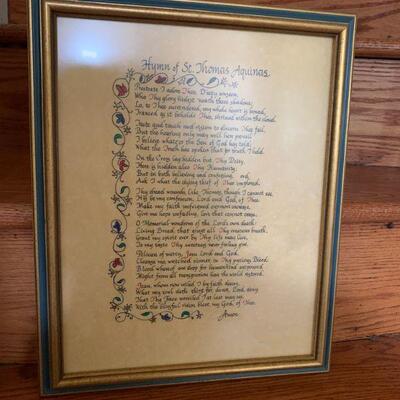 Hymn of St. Thomas Aquinas
Prostrate I adore Thee, Deity unseen,
Who Thy glory hidest 'neath these shadows mean;
Lo, to Thee surrendered, my whole heart is bowed,
Tranced as it beholds Thee, shrined within the cloud.
Taste and touch and vision to discern Thee fail;
But the hearing only may well here prevail
I believe whatever the Son of God has told,
What the Truth has spoken that for truth I hold.
On the Cross lay hidden but Thy Deity,
Here is hidden also Thy Humanity:
But in both believing and confessing, and,
Ask I what the dying thief of Thee implored.
Thy dread wounds, like Thomas, though I cannot see,
His be my confession, Lord and God, of Thee.
Make my faith unfeigned evermore increase,
Give me hope unfading, love that cannot cease.
O Memorial wondrous of the Lord's own death;
Living Bread, that givest all Thy creatures breath,
Grant my spirit ever by Thy life may live,
To my taste Thy sweetness never failing give.
Pelican of mercy, Jesu Lord and God,
Cleanse me, wretched sinner, in Thy precious Blood;
Blood whereof one drop for humankind outpoured
Might from all transgression have the world restored.
Jesu, whom now veiled, I by faith descry,
What my soul doth thirst for, do not, Lord, deny.
That Thy Face unveiled, I at last may see,
With the blissful vision blest, my God, of Thee.
Amen.